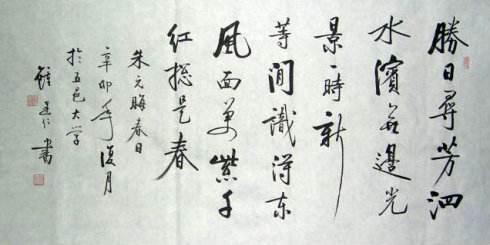 勝日尋芳泗
水濱無邊光
景一時新
等閒識得東
風面萬紫千
紅総是春
朱元晦春日
辛卯年復月
於五邑大学
仁書